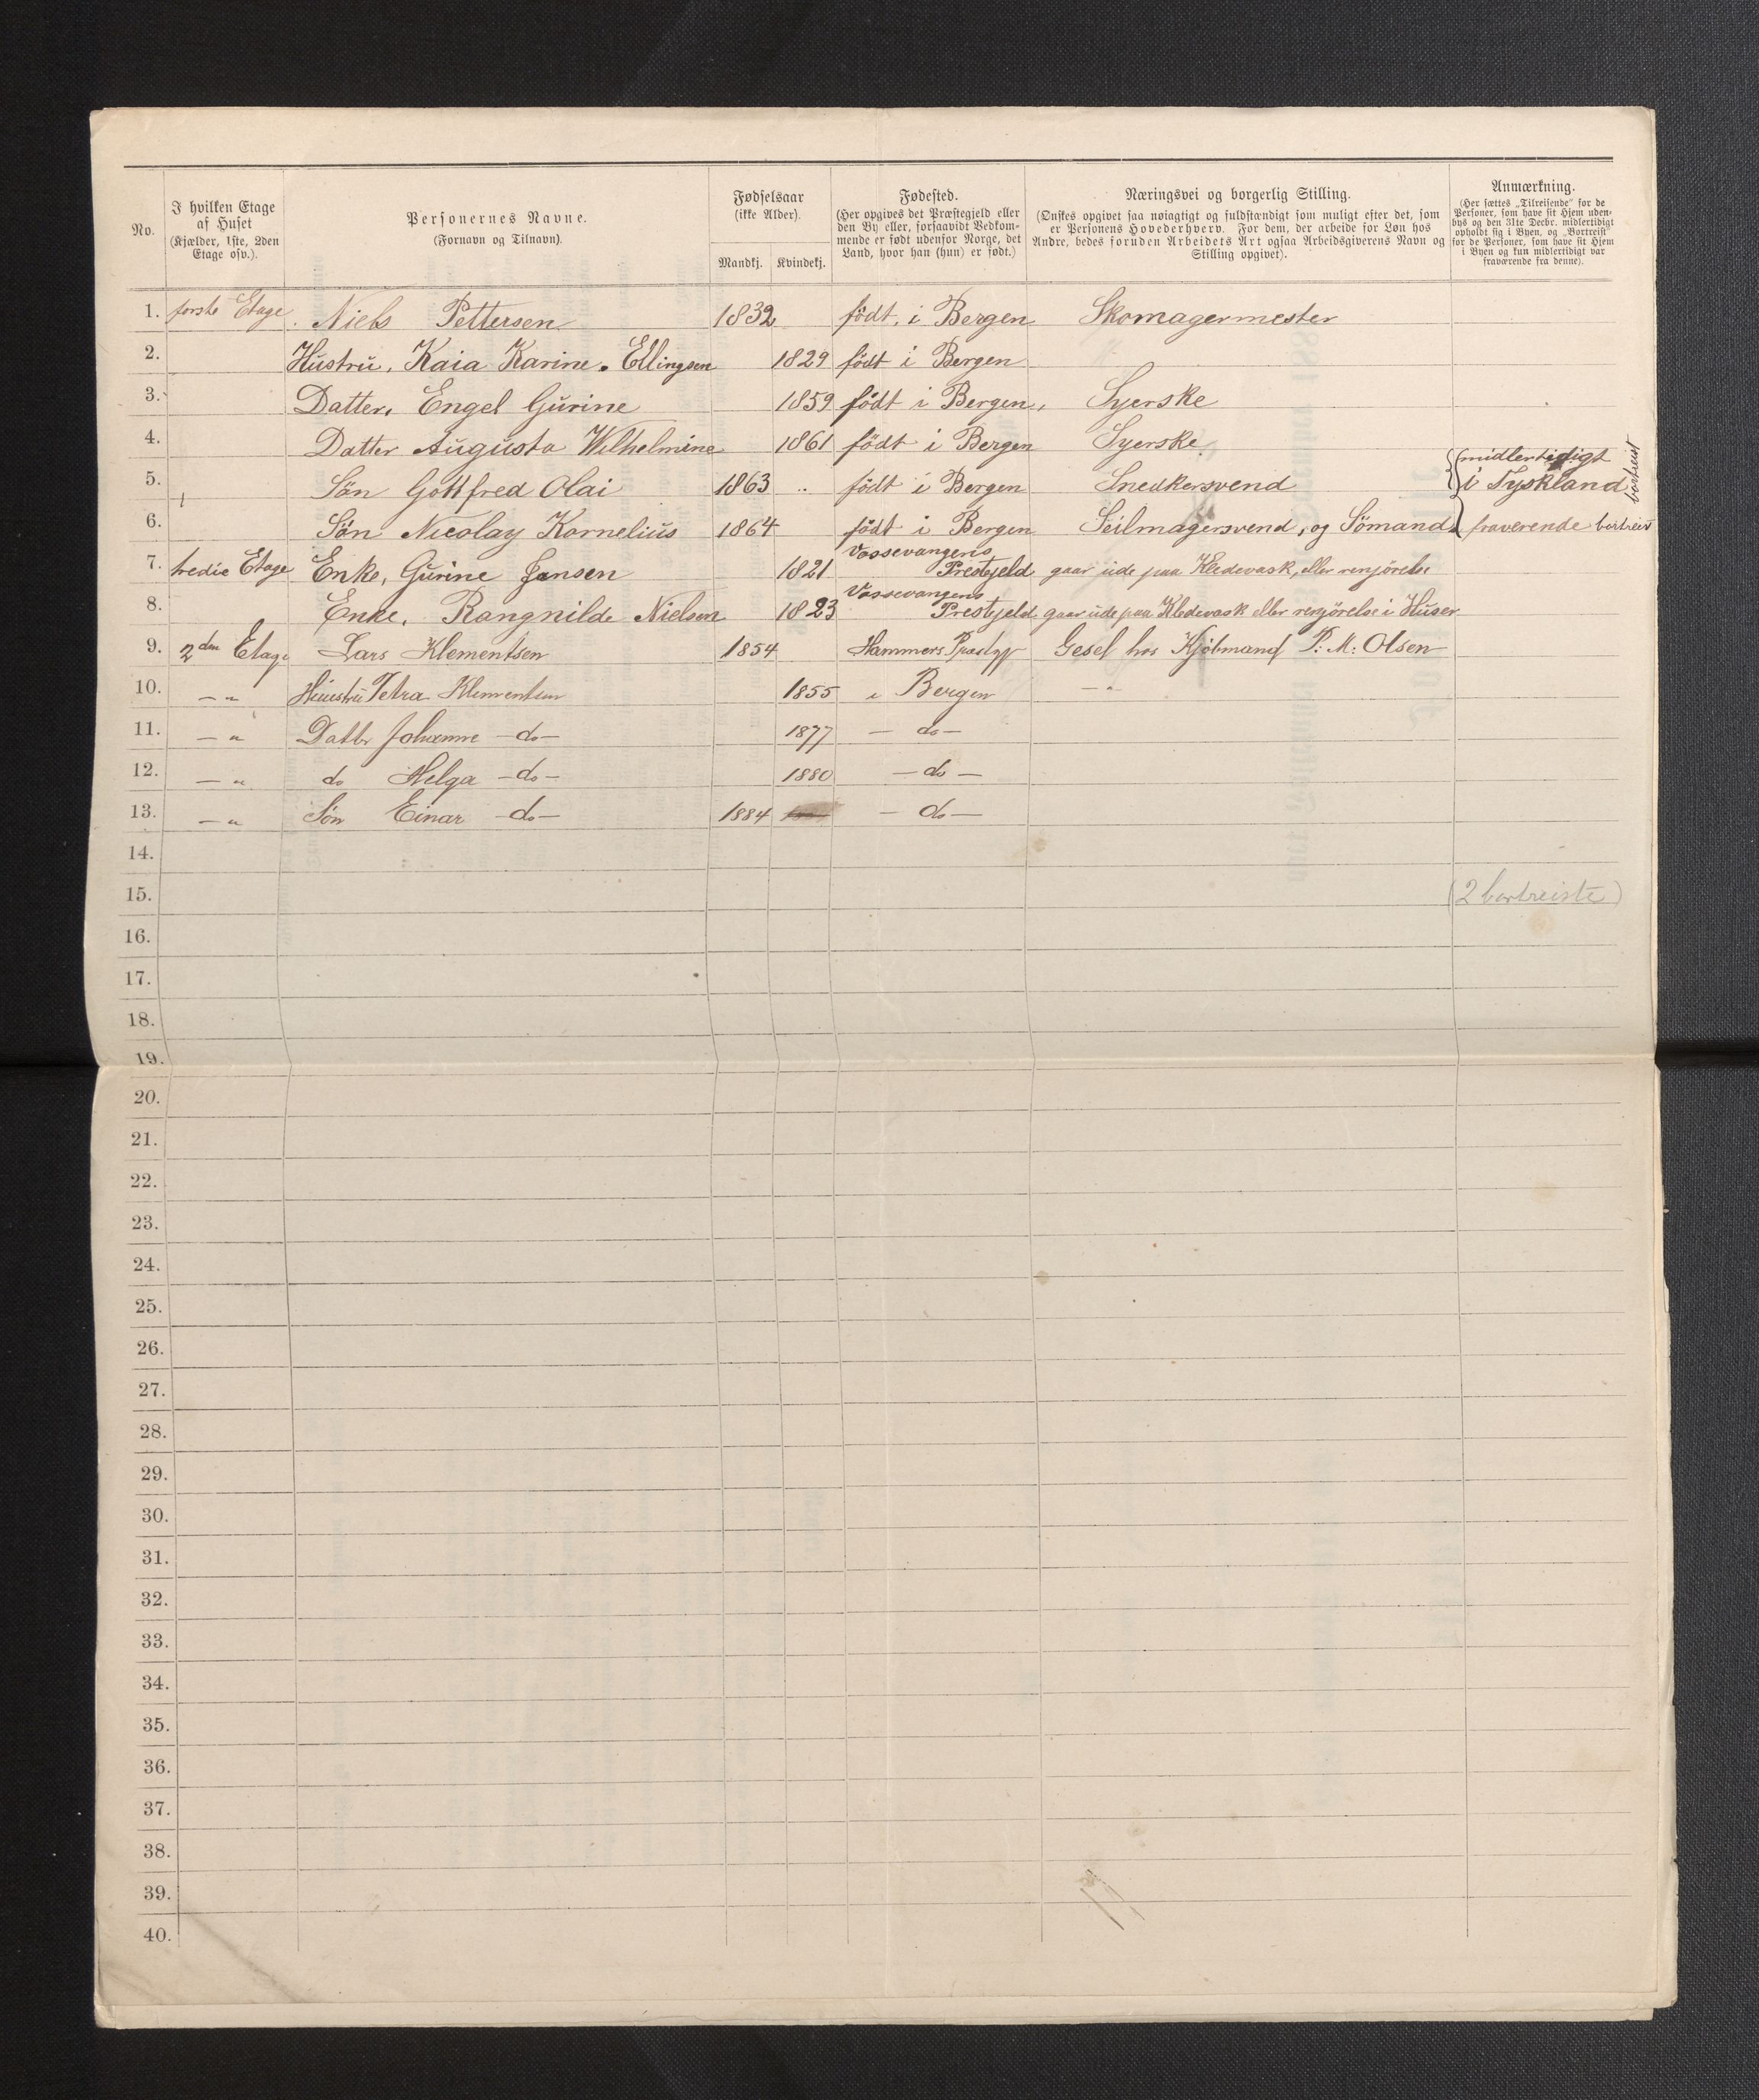 No.
I hvilken Etage
af Huset
(Kjælder, 1ste, 2den
Etage osv.).
Personernes Navne.
(Fornavn og Tilnavn).
Fødselsaar
(ikke Alder).
Mandkj. Kvindekj.
Fødested.
(Her opgives det Præstegjeld eller
den By eller, forsaavidt Vedkom-
mende er født udenfor Norge, det
Land, hvor han (hun) er født.)
Næringsvei og borgerlig Stilling.
(Ønskes opgivet saa nøiagtigt og fuldstændigt som muligt efter det, som
er Personens Hovederhverv. For dem, der arbeide for Løn hos
Andre, bedes foruden Arbeidets Art ogsaa Arbeidsgiverens Navn og
Stilling opgivet).
Anmærkning.
(Her sættes „Tilreisende“ for de
Personer, som have sit Hjem uden-
bys og den 31te Decbr. midlertidigt
opholdt sig i Byen, og „Bortreist“
for de Personer, som have sit Hjem
i Byen og kun midlertidigt var
fraværende fra denne).
1. forste Etage. Niels Pettersen 1832 födt, i Bergen Skomagermester
2. Hustru, Kaia Karine. Ellingsen 1829 födt i Bergen
3. Datter, Engel Gurine 1859 födt i Bergen, Syerske
4. Datter Augusta Wilhelmine 1861 födt i Bergen Syerske
5. Sön Gottfred Olai 1863 „ födt i Bergen Snedkersvend midlertidigt
i Tyskland bortreist
6. Sön Nicolay Kornelius 1864 födt i Bergen Seilmagersvend, og Sömand fraverende bortreist
7. tredie Etage Enke, Gurine Jansen 1821 Vossevangens
Prestejeld gaar ude paa Kledevask, eller renjörelse
8. Enke, Rangnilde Nielsen 1823 Vossevangens
Prestejeld gaar ude paa Kledevask eller renjörelse i Huser
9. 2den Etage Lars Klementsen 1854 Hammers Gesel hos Kjöbmand P: M: Olsen
10. — „ Huustru Petra Klementsen 1855 i Bergen — „
11. — „ Datter Johanne — do — 1877 — do —
12. — „ do Helga — do — 1880 — do —
13. — „ Sön Einar — do — 1884 — do —
14.
15. (2 bortreiste)
16.
17.
18.
19.
20.
21.
22.
23.
24.
25.
26.
27.
28.
29.
30.
31.
32.
33.
34.
35.
36.
37.
38.
39.
40.